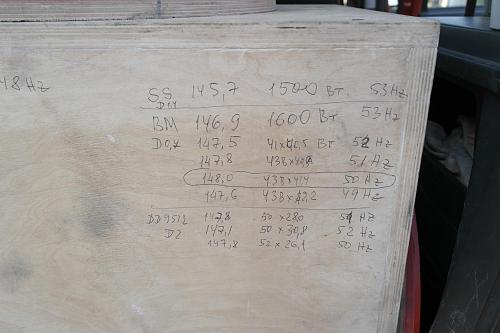 48Hz
SS 145,7 1500 Вт. 53Hz
D1,1
BM 146,9 1600 Вт 53Hz
D0,4 147,5 41x40,5 Вт 52Hz
147,8 43В x 51Hz
148,0 43В x 41,4 50 Hz
147,6 43В x 42,2 49 Hz
147,8 50 x 28,0 51 Hz
D2 147,1 50 x 30,8 52 Hz
147,8 52 x 26,1 50 Hz